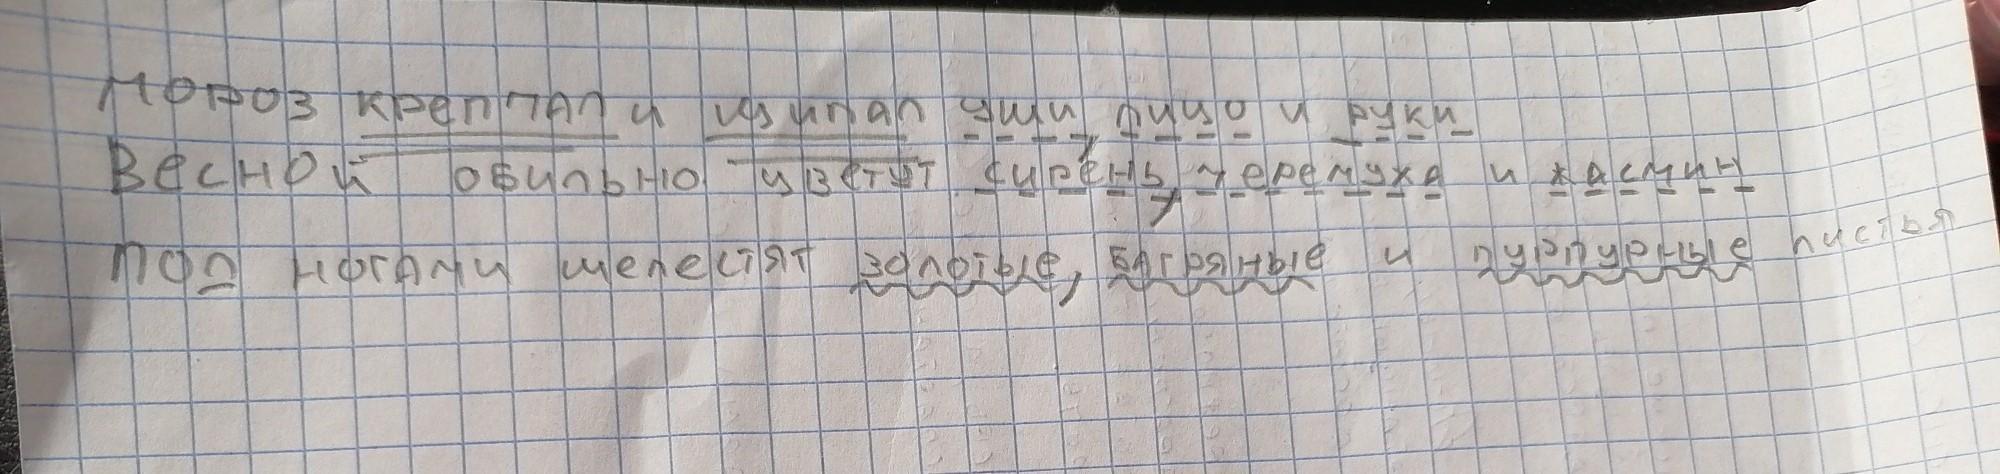 Мороз крепчал и щипал уши, лицо и руки
Весной обильно цветут сирень, черемуха и жасмин
под ногами шелестят золотые, багряные и пурпурные листья